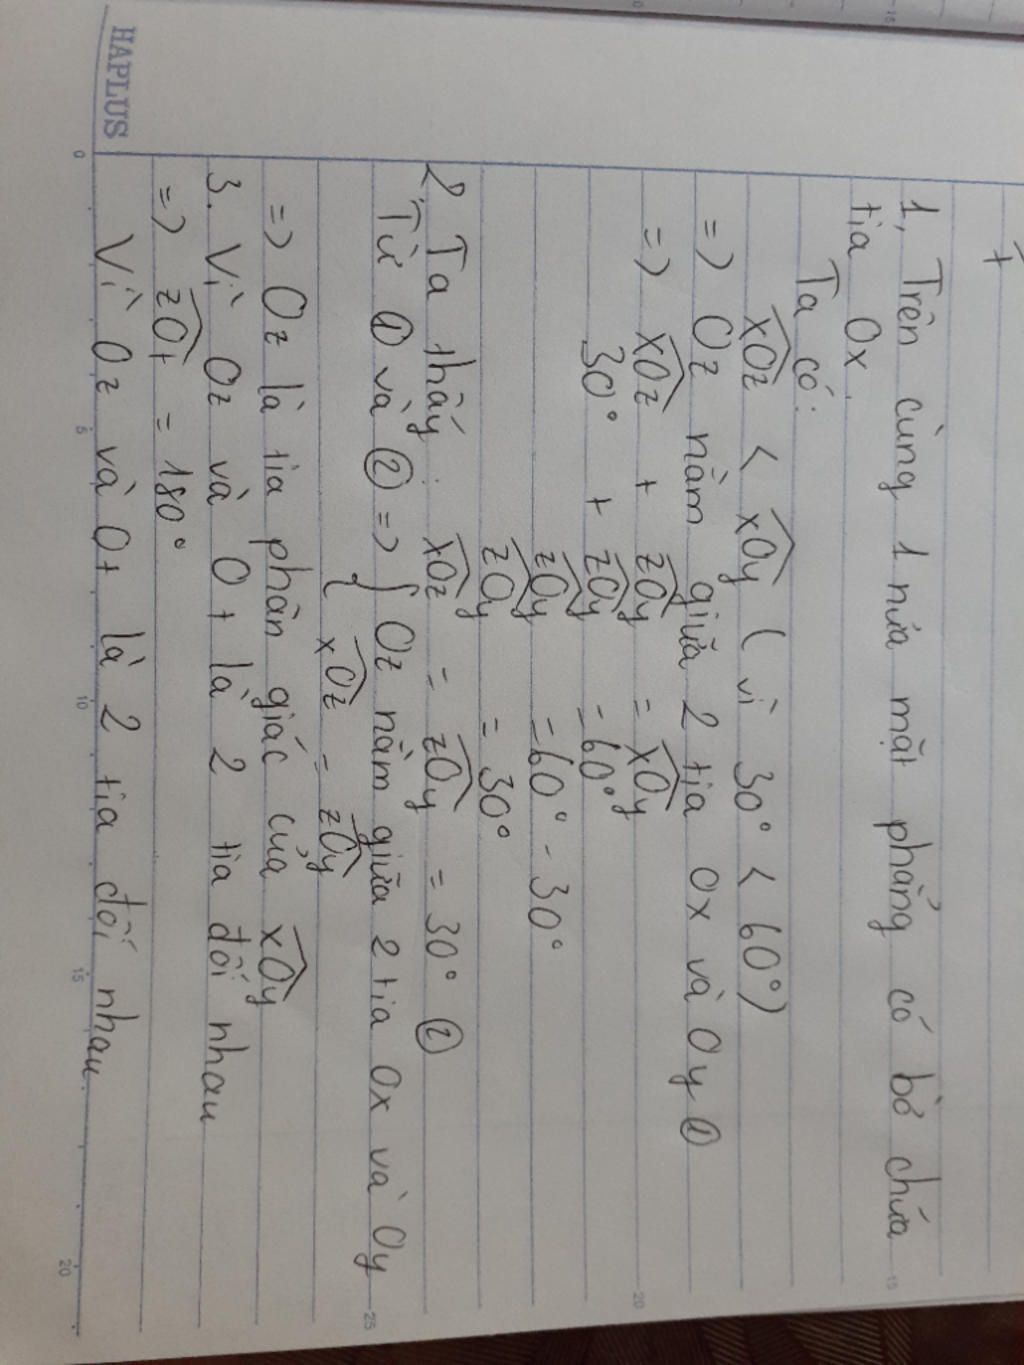 t
1, Trên cùng 1 nửa mặt phẳng có bờ chứa
tia Ox.
Ta có:
xOz < xOy ( vì 30° < 60°)
=> Oz nằm giữa 2 tia Ox và Oy ①
=> xOz + zOy = xOy
30° + zOy = 60°
zOy = 60° - 30°
zOy = 30°
2, Ta thấy: xOz = zOy = 30° ②
Từ ① và ② => { Oz nằm giữa 2 tia Ox và Oy
{ xOz = zOy
=> Oz là tia phân giác của xOy
3. Vì Oz và Ot là 2 tia đối nhau
=> zOt = 180°
Vì Oz và Ot là 2 tia đối nhau.
HAPLUS
0 5 10 15 20
15
20
25